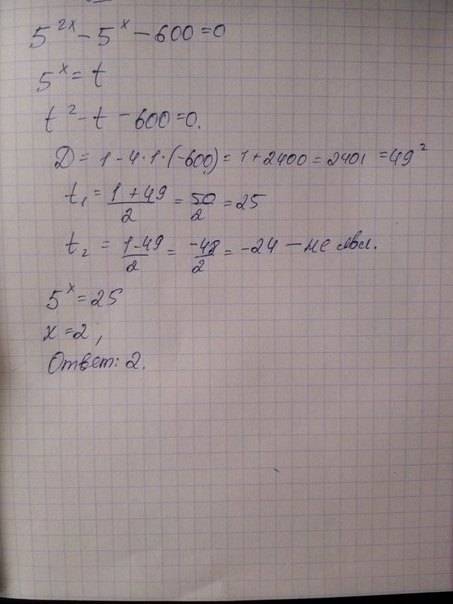 5^{2x} - 5^x - 600 = 0
5^x = t
t^2 - t - 600 = 0.
D = 1 - 4 · 1 · (-600) = 1 + 2400 = 2401 = 49^2
t_1 = \frac{1+49}{2} = \frac{50}{2} = 25
t_2 = \frac{1-49}{2} = \frac{-48}{2} = -24 — не явл.
5^x = 25
x = 2,
Ответ: 2.